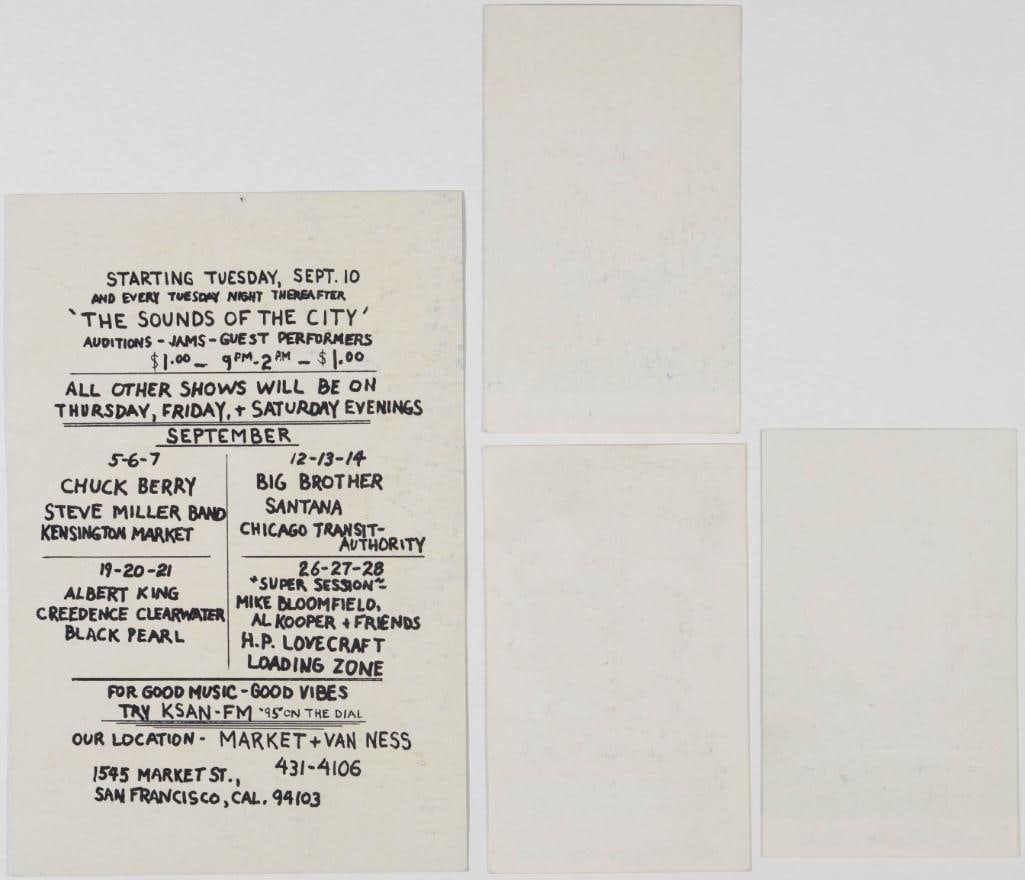 STARTING TUESDAY, SEPT. 10
AND EVERY TUESDAY NIGHT THEREAFTER
'THE SOUNDS OF THE CITY'
AUDITIONS - JAMS - GUEST PERFORMERS
$1.00 - 9PM-2PM - $1.00
ALL OTHER SHOWS WILL BE ON
THURSDAY, FRIDAY, + SATURDAY EVENINGS
SEPTEMBER
5-6-7
CHUCK BERRY
STEVE MILLER BAND
KENSINGTON MARKET
12-13-14
BIG BROTHER
SANTANA
CHICAGO TRANSIT-
AUTHORITY
19-20-21
ALBERT KING
CREEDENCE CLEARWATER
BLACK PEARL
26-27-28
"SUPER SESSION"-
MIKE BLOOMFIELD,
AL KOOPER + FRIENDS
H.P. LOVECRAFT
LOADING ZONE
FOR GOOD MUSIC - GOOD VIBES
TRY KSAN-FM "95" ON THE DIAL
OUR LOCATION - MARKET + VAN NESS
431-4106
1545 MARKET ST.,
SAN FRANCISCO, CAL. 94103